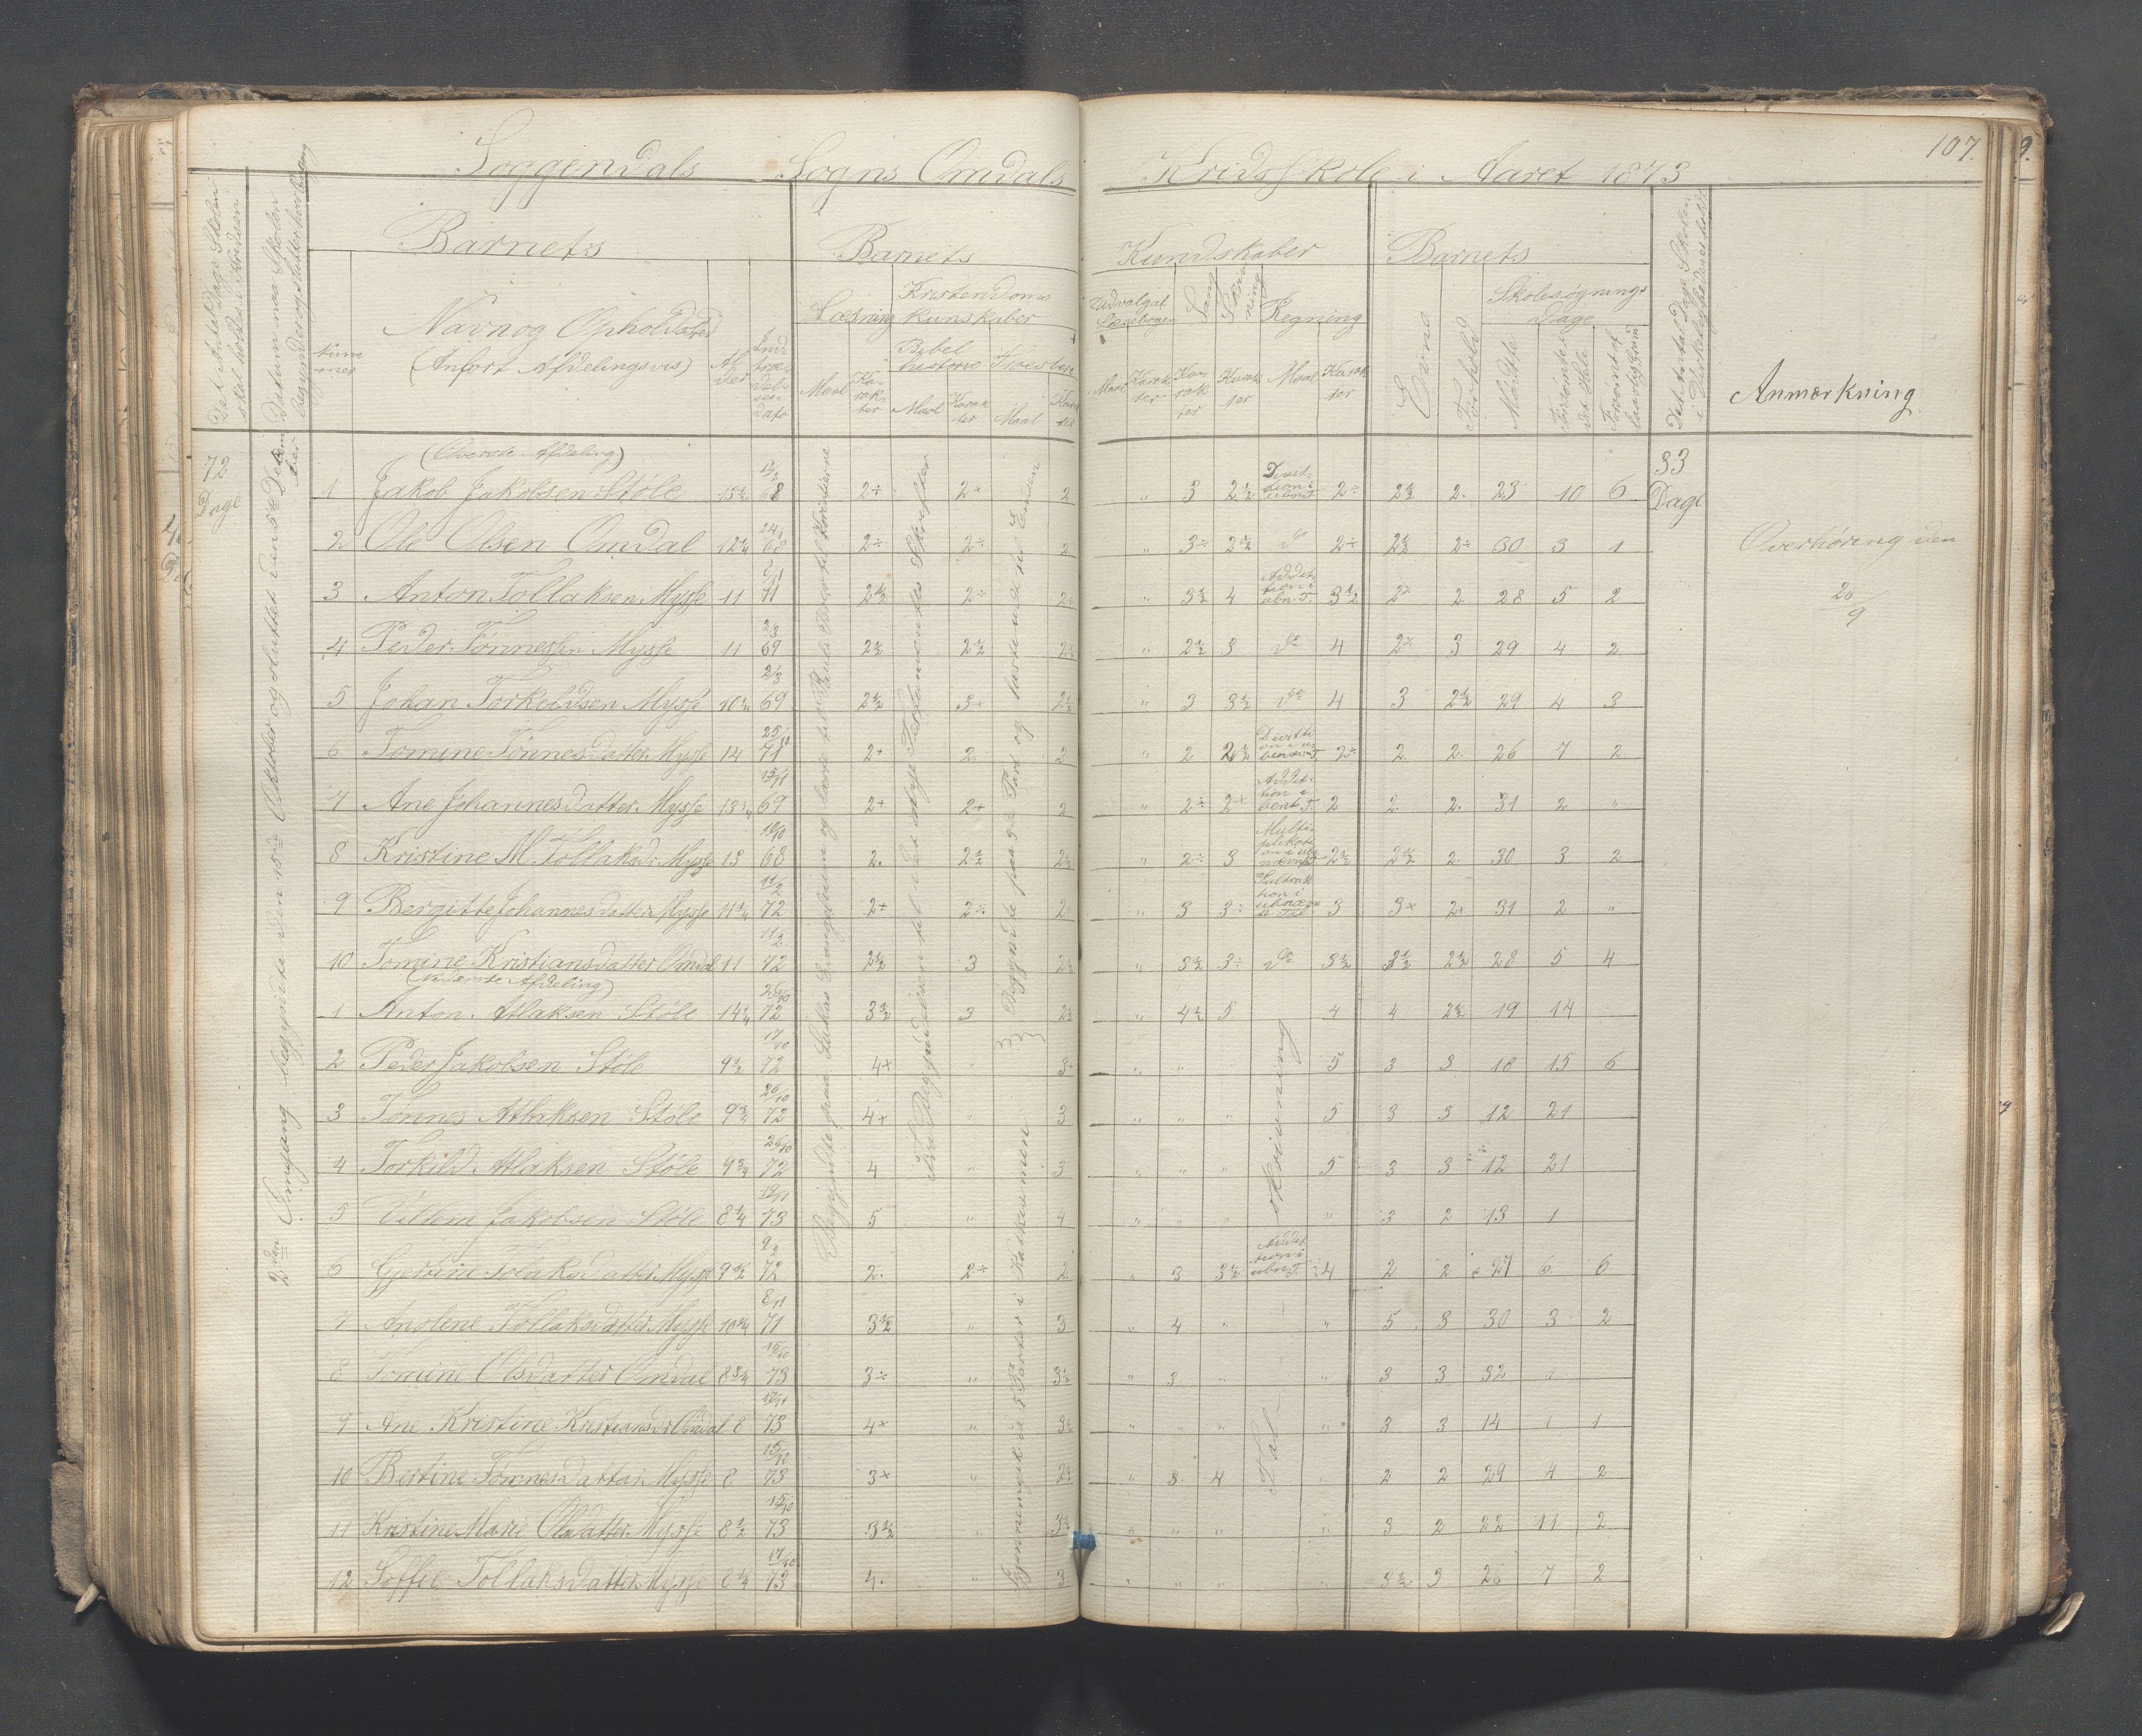 107.
Soggendals Sogns Omdals Kridsskole i Aaret 1873
Det Antal Dage Skolen skal holdes i Kredsen
Datum naar Skolen begynder og slutter hver Gang
Barnets
Barnets
Kundskaber
Barnets
Det Antal Dage Skolen i Virkeligheden er holdt
Anmærkning
Num mer
Navn og Opholdsted
(Anført Afdelingsvis)
Al der
Ind træ delses Dato
Læsning
Kristendoms kunskaber
Bibel historie
Troeslære
Udvalgat Læsebogen
Sang
Skriv ning
Regning
Evne
Forhold
Skolesøgnings Dage
Mødte
Forsømte i det Hele
Forsømt af lovlig Grund
Maal Karak ter Maal Karak ter Maal Karak ter
Maal Karak ter Karak ter Karak ter Maal Karak ter
72 Dage
33 Dage
2den Omgang begyndte den 15de Oktober og sluttet den 5te December
(Øverste Afdeling)
1 Jakob Jakobsen Støle 13½ 68 2÷ 2+ 2 " 3 2½ 2÷ 2½ 2. 23 10 6
2 Ole Olsen Omdal 12¼ 68 2÷ 2÷ 2 " 3÷ 2½ do 2÷ 2½ 2÷ 30 3 1
Overhøring den 20/9
3 Anton Tollaksen Mysse 11 71 2½ 2÷ 2÷ " 3½ 4 Addition i ubn. T. 3½ 2÷ 2 28 5 2
4 Peder Tønnessen Mysse 11 2/3 69 2½ 2½ 2½ " 2½ 3 do 4 2÷ 3 29 4 2
5 Johan Torkeldsen Mysse 10½ 2/3 69 2½ 3+ 2½ " 3 3½ do 4 3 2½ 29 4 3
6 Tomine Tønnesdatter Mysse 14 25/10 71 2+ 2 2 " 2 2½ 2÷ 2 2. 26 7 2
7 Ane Johannesdatter Mysse 13¾ 69 2+ 2+ 2 " 2÷ 2+ Addition i bent T. 2 2. 2. 31 2 "
8 Kristine M. Tollaksd. Mysse 13 68 2. 2½ 2½ " 2÷ 3 2½ 2½ 2. 30 3 2
9 Bergitte Johannesdatter Mysse 11¾ 11/2 72 2+ 2÷ 2 " 3 3÷ 3 3+ 2+ 31 2 "
10 Tomine Kristiansdatter Omdal 11 11/2 72 2½ 3 2½ " 3½ 3÷ do 3½ 3½ 2½ 28 5 4
(Nederste Afdeling)
1 Anton Atlaksen Støle 14¼ 26/10 72 3½ 3 2½ " 4½ 5 4 4 2½ 19 14
2 Peder Jakobsen Støle 9½ 17/10 72 4+ " 3+ " " " 5 3 3 18 15 6
3 Tønnes Atlaksen Støle 9¾ 26/10 72 4+ " 3 " " " 5 3 3 12 21
4 Torkild Atlaksen Støle 9¾ 26/10 72 4 " 3 " " " 5 3 3 12 21
5 Villem Jakobsen Støle 8¼ 73 5 " 4 " " " " 3 2 13 1
6 Gjertine Tolaksdatter Mysse 9½ 9/2 72 2. 2÷ 2 " 3 3½ Addition i ubn T. 4 2 2 27 6 6
7 Anglene Tollaksdatter Mysse 10¼ 8/11 71 3½ " 3 " 4 " " 5 3 30 3 2
8 Tomine Olsdatter Omdal 8¾ 15/10 73 3÷ " 3½ " 3 " " 3 3 32 1
9 Ane Kristine Kristiansdr Omdal 8 73 4+ " 3½ " " " " 3 3 14 1 1
10 Bertine Tønnesdatter Mysse 8 15/10 73 3+ " 2½ " 3. 4 " 2 2 29 4 2
11 Kristine Marie Olsdatter Mysse 8½ 15/10 73 3½ " 3½ " " " " 3 2 22 11 2
12 Soffie Tollaksdatter Mysse 8¼ 17/10 73 4. " 3 " " " " 3½ 3 26 7 2
Begyndte paa Lukas Evangelium og læste til Pauli Brev til Korintierne
Fra Begyndelsen til det nye Testamentes Skrifter
Begyndte paa 3die Part og læste ud til Enden
Gjennemgik de 5 Parter i Katekismen
skrivning
Tal